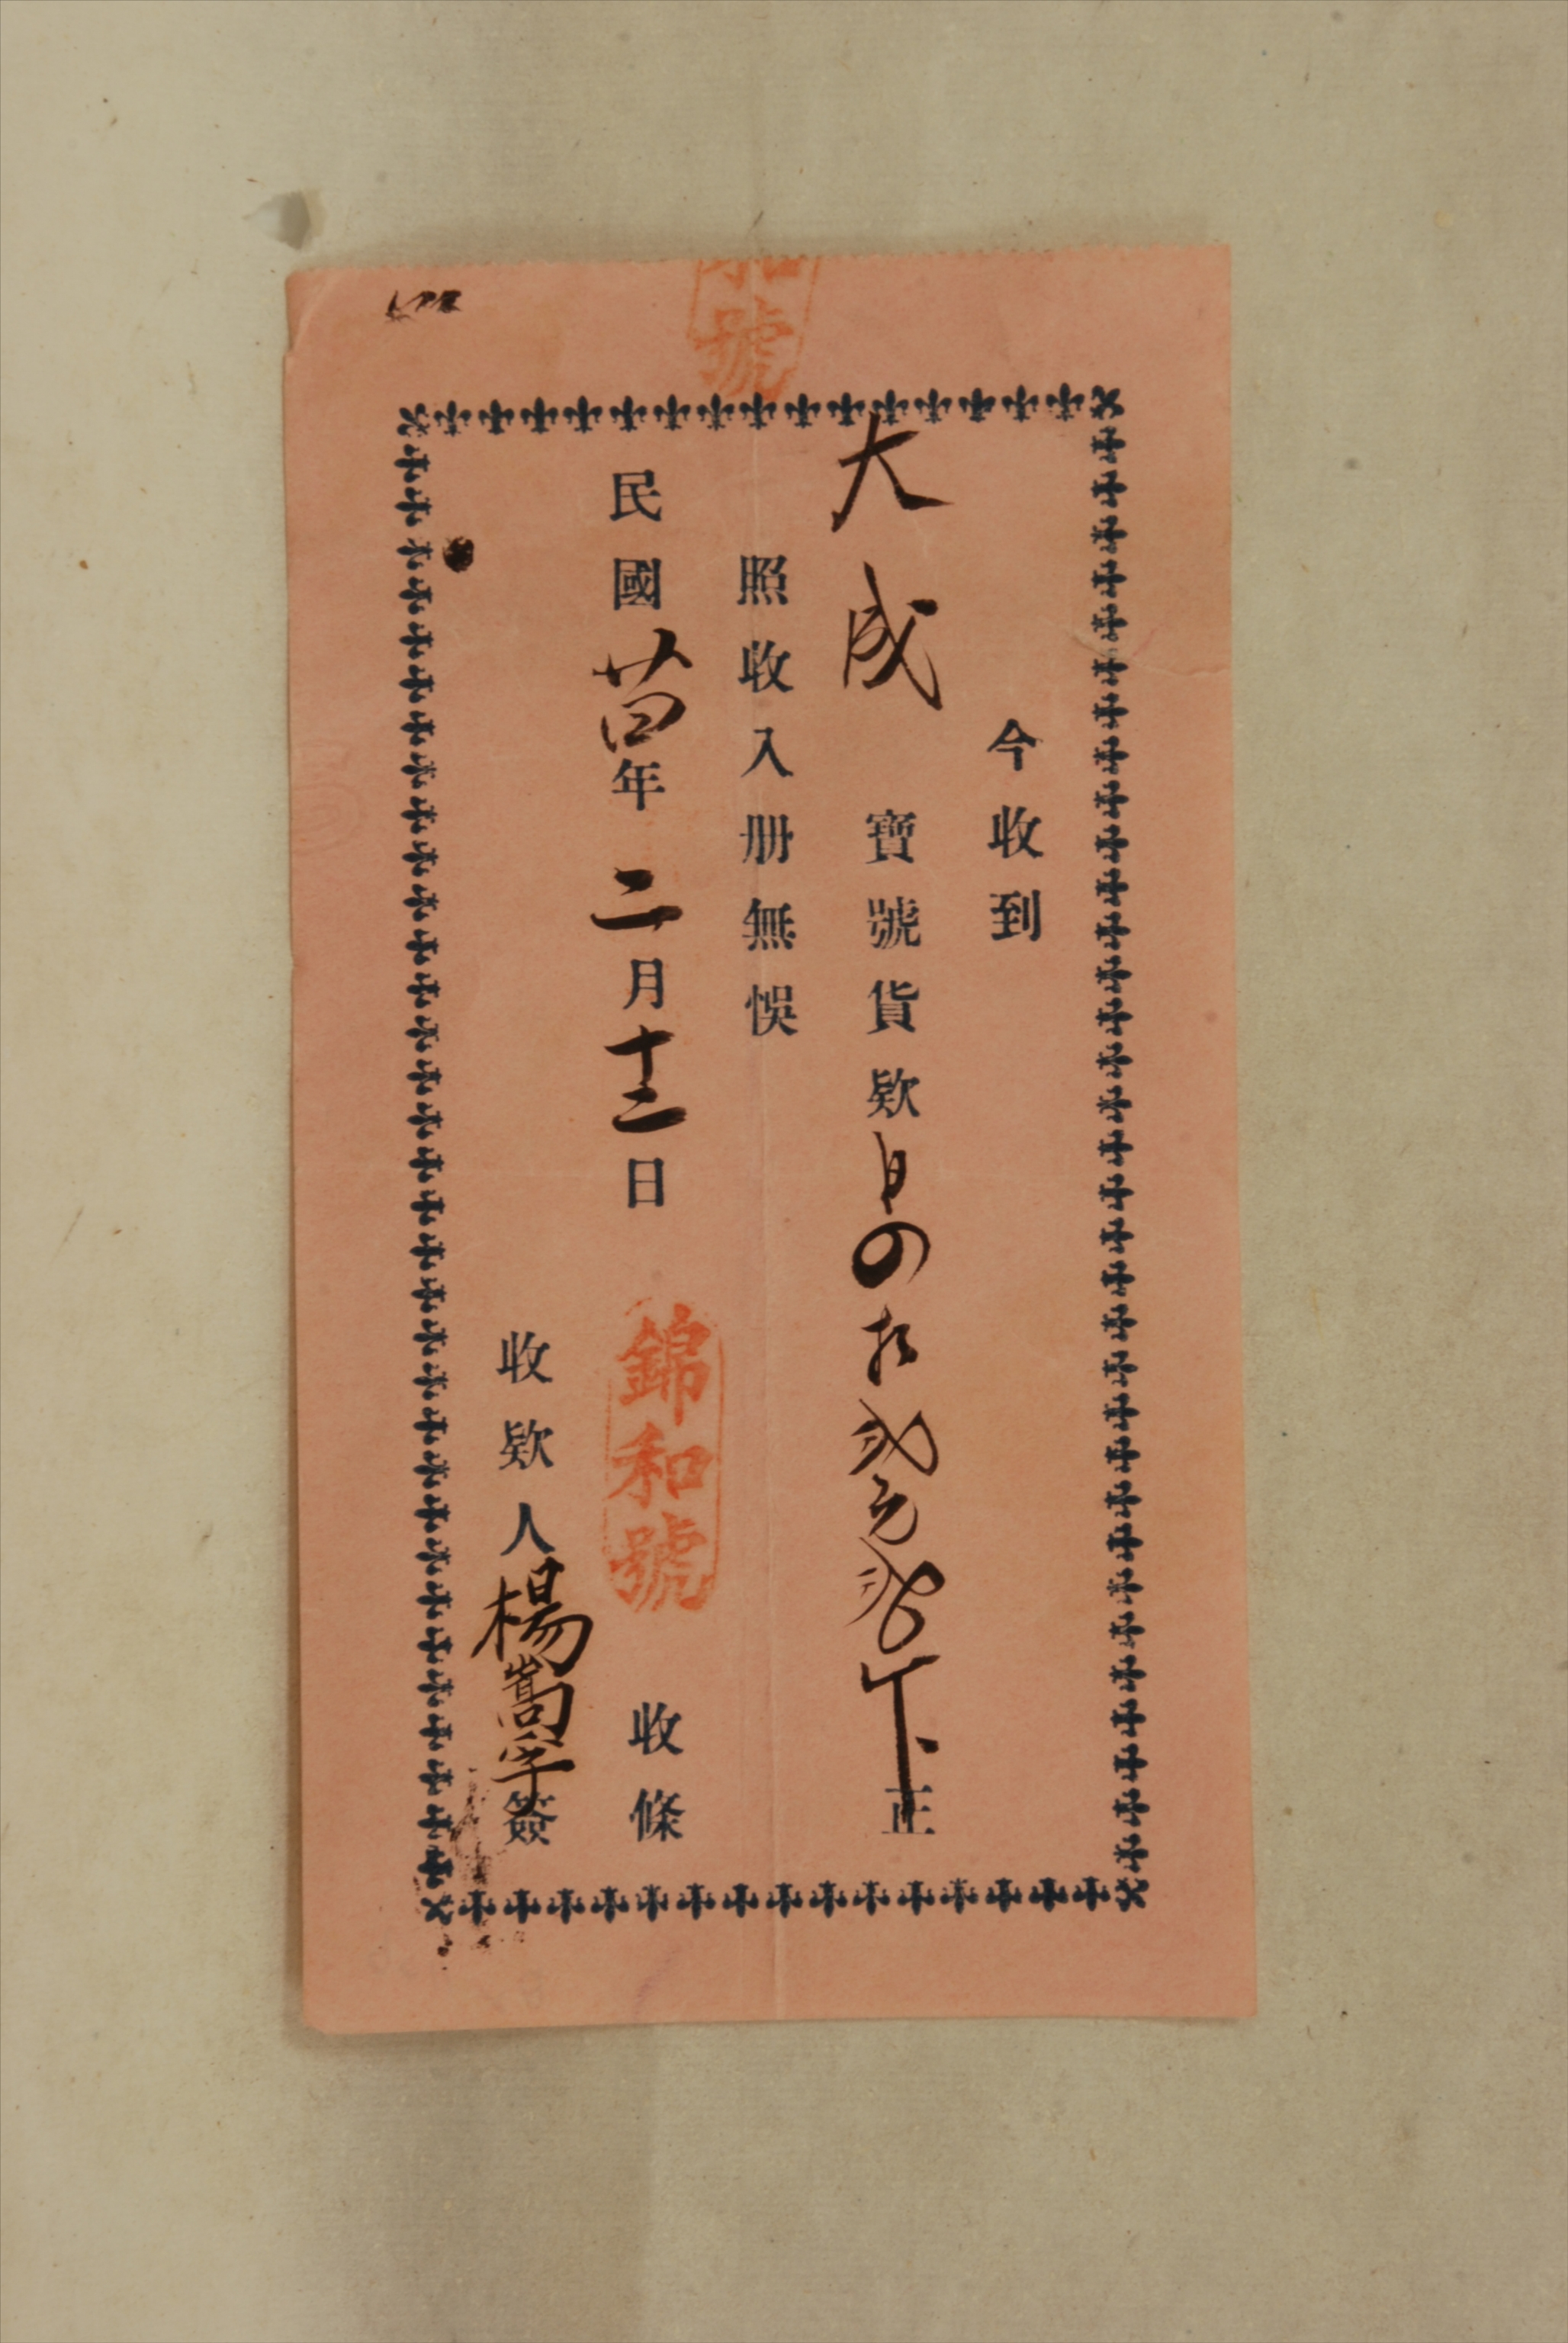 今收到
大成寶號貨欵四拾弍元弍正
照收入册無悞
民國廿四年二月十二日 錦和號 收條
收欵人楊簽
和號